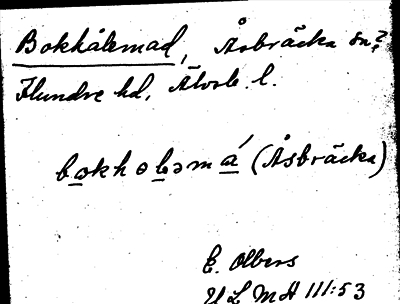 Bokhålemad, Åsbräcka sn?
Flundre hd, Älvsb. l.
bokholəmá (Åsbräcka)
E. Olbers
ULMA 111:53